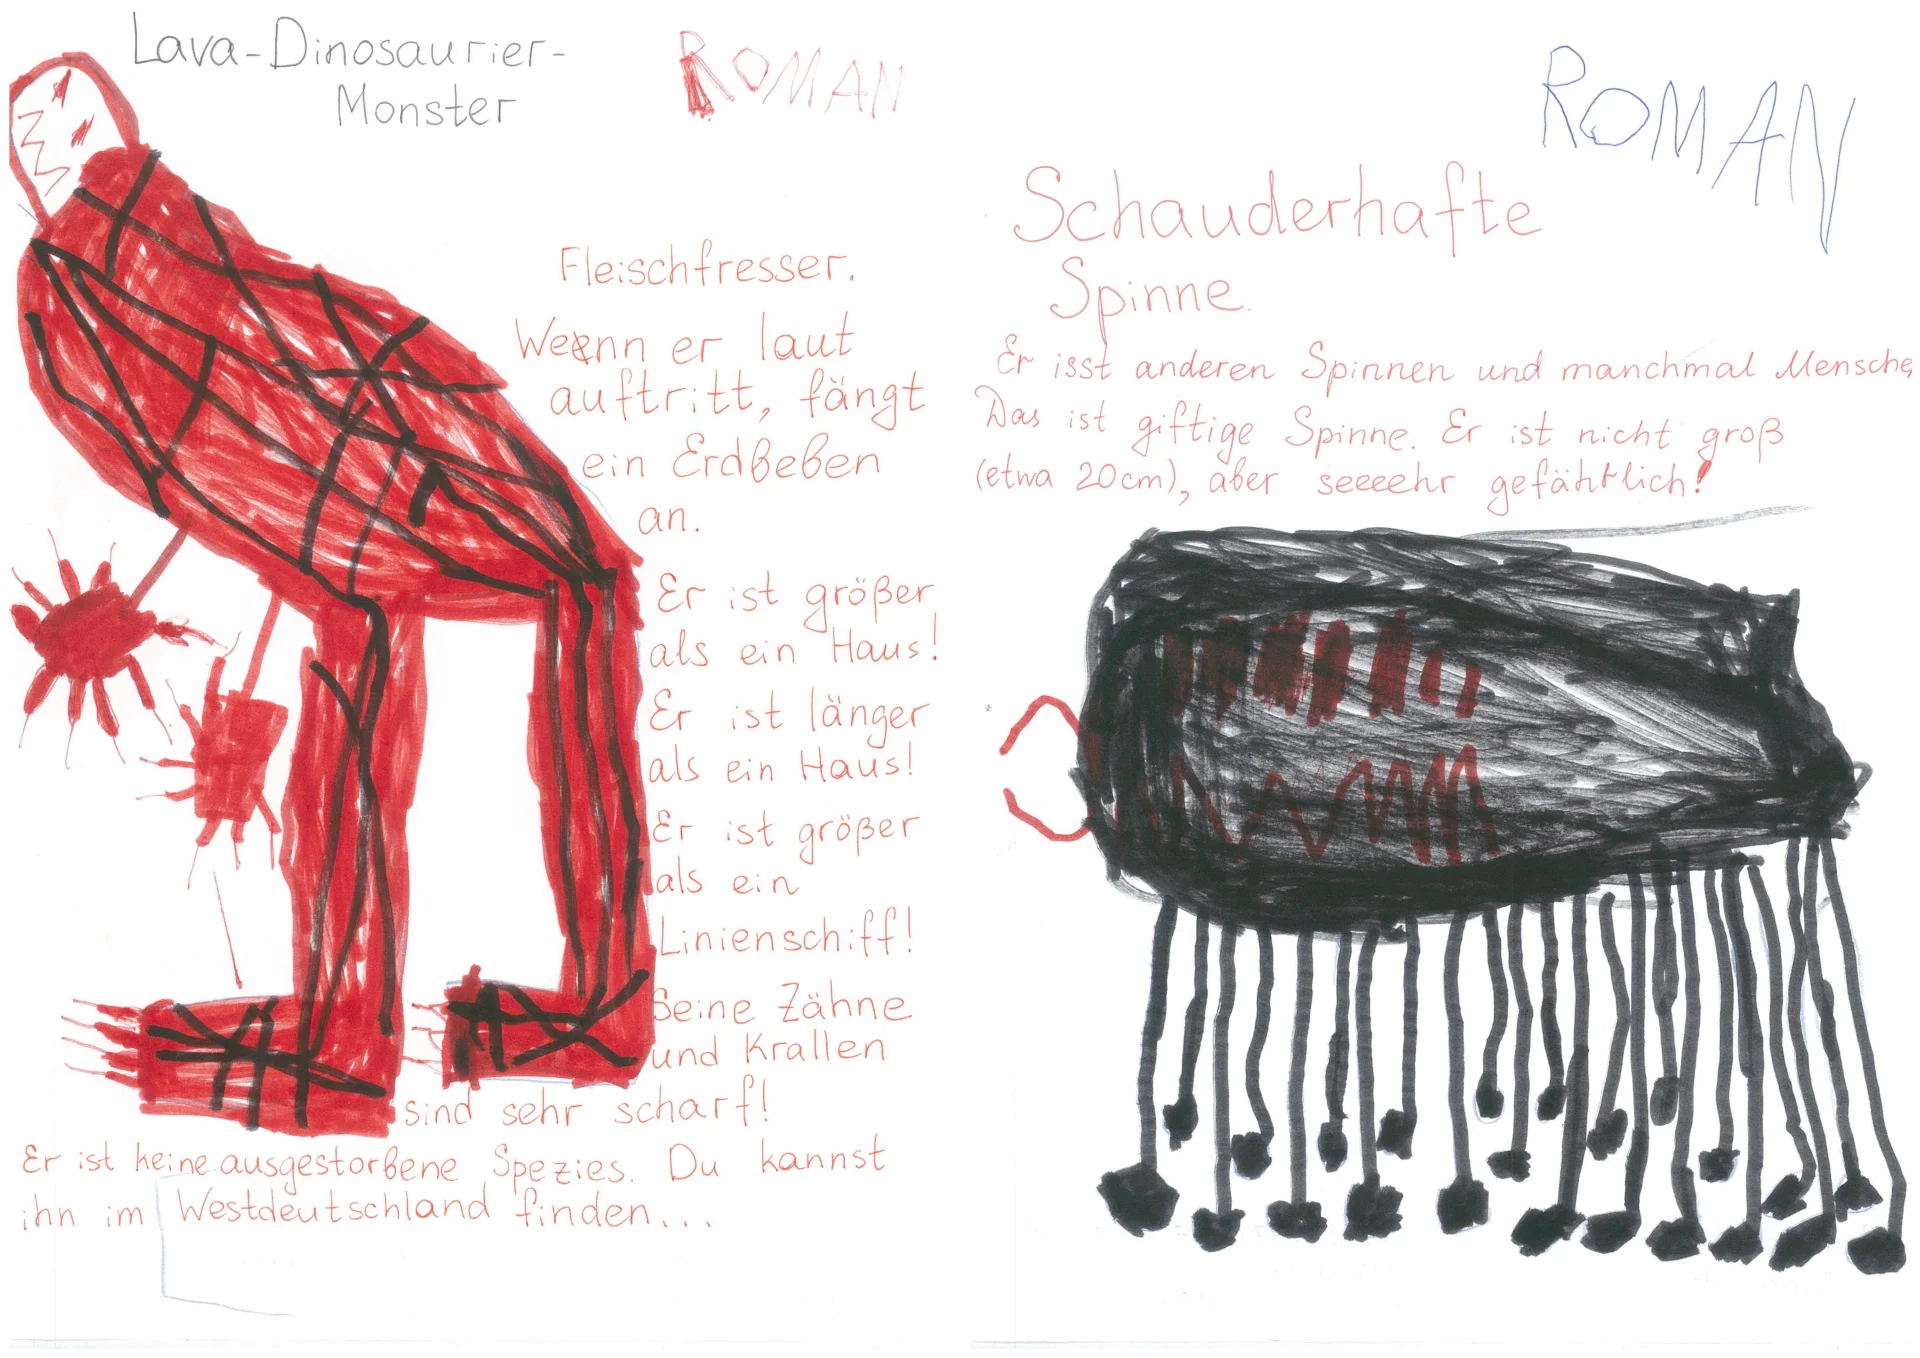 Lava-Dinosaurier-
Monster
ROMAN
Fleischfresser.
Wenn er laut
auftritt, fängt
ein Erdbeben
an.
Er ist größer
als ein Haus!
Er ist länger
als ein Haus!
Er ist größer
als ein
Linienschiff!
Seine Zähne
und Krallen
sind sehr scharf!
Er ist keine ausgestorbene Spezies. Du kannst
ihn im Westdeutschland finden...
ROMAN
Schauderhafte
Spinne.
Er isst anderen Spinnen und manchmal Mensche
Das ist giftige Spinne. Er ist nicht groß
(etwa 20cm), aber seeeehr gefährlich!